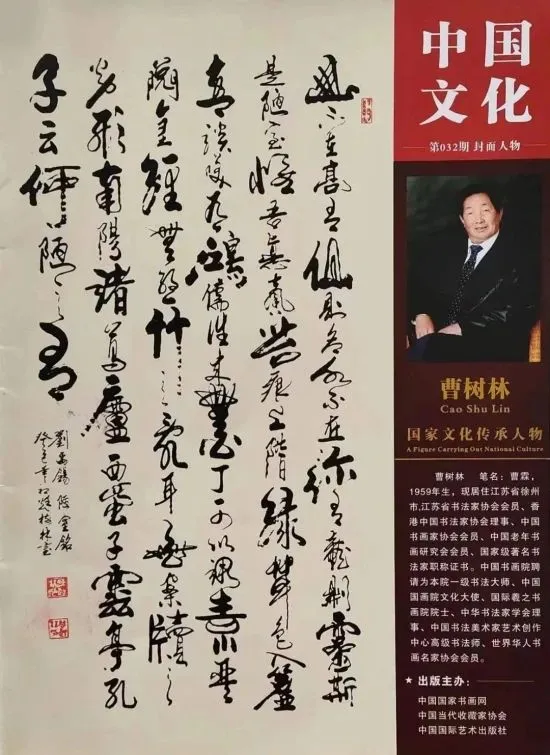 中国
文化
第032期 封面人物
曹树林
Cao Shu Lin
国家文化传承人物
A Figure Carrying Out National Culture
曹树林 笔名：曹霖，
1959年生，现居住江苏省徐州
市,江苏省书法家协会会员、香
港中国书法家协会理事、中国
书画家协会会员、中国老年书
画研究会会员、国家级著名书
法家职称证书。中国书画院聘
请为本院一级书法大师、中国
国画院文化大使、国际羲之书
画院院士、中华书法家学会理
事、中国书法美术家艺术创作
中心高级书法师、世界华人书
画名家协会会员。
★ 出版主办：
中国国家书画网
中国当代收藏家协会
中国国际艺术出版社
山不在高有仙則名水不在深有龍則靈斯
是陋室惟吾德馨苔痕上階綠草色入簾
青談笑有鴻儒往來無白丁可以調素琴
閱金經無絲竹之亂耳無案牘之
勞形南陽諸葛廬西蜀子雲亭孔
子云何陋之有
劉禹錫陋室銘